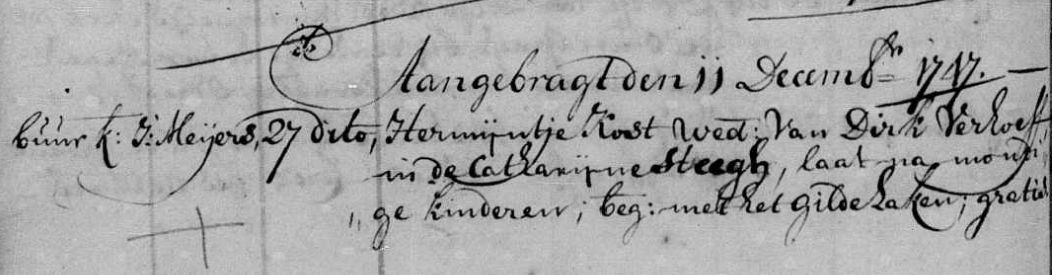 Aangebragt den 11 Decembr. 1747.
buur k: J: Meijers, 27 dito, Hermijntje Kost wed: van Dirk Verhoeff,
in de Catharijne Steegh, laat na mondi
ge kinderen; beg: met het gilde laken; gratis